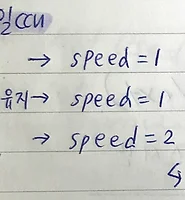 → speed = 1
유지→ speed = 1
→ speed = 2